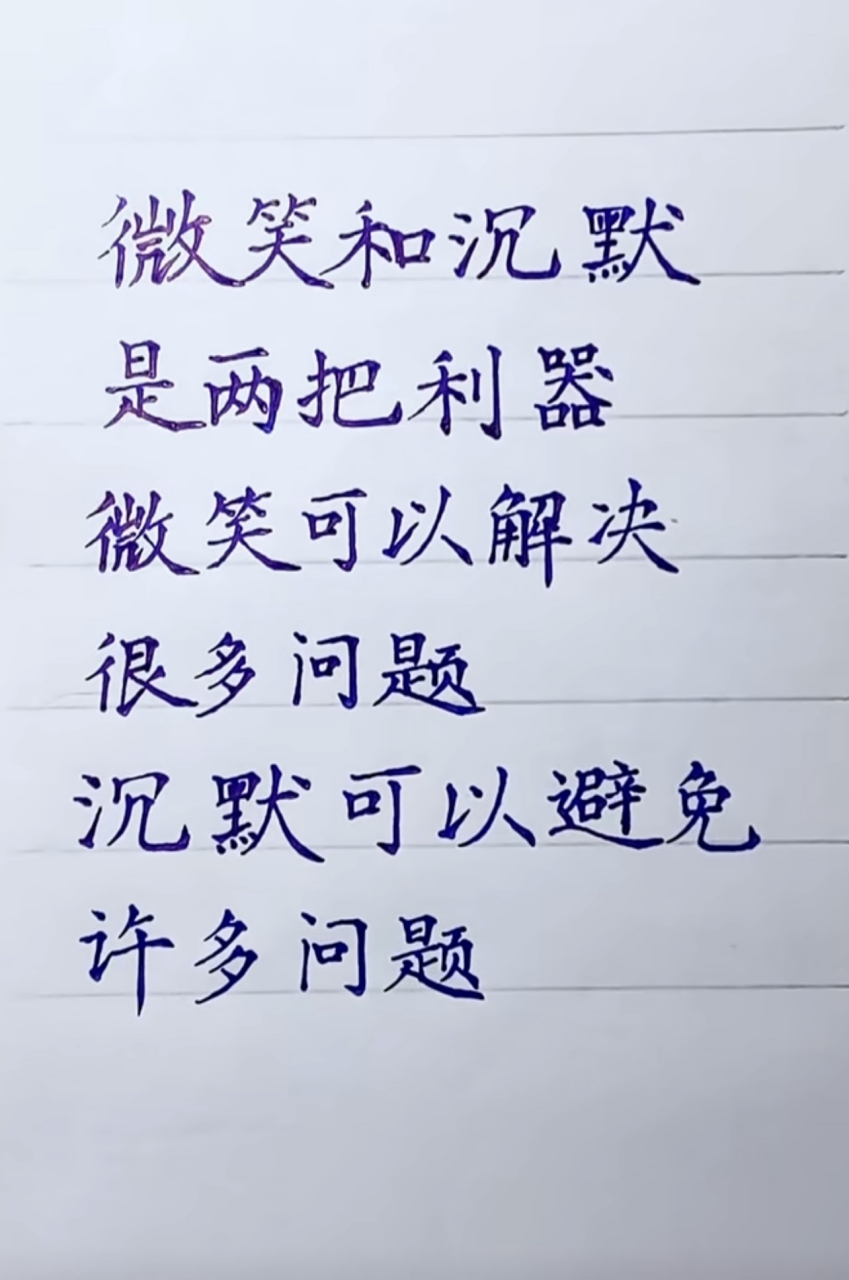 微笑和沉默
是两把利器
微笑可以解决
很多问题
沉默可以避免
许多问题